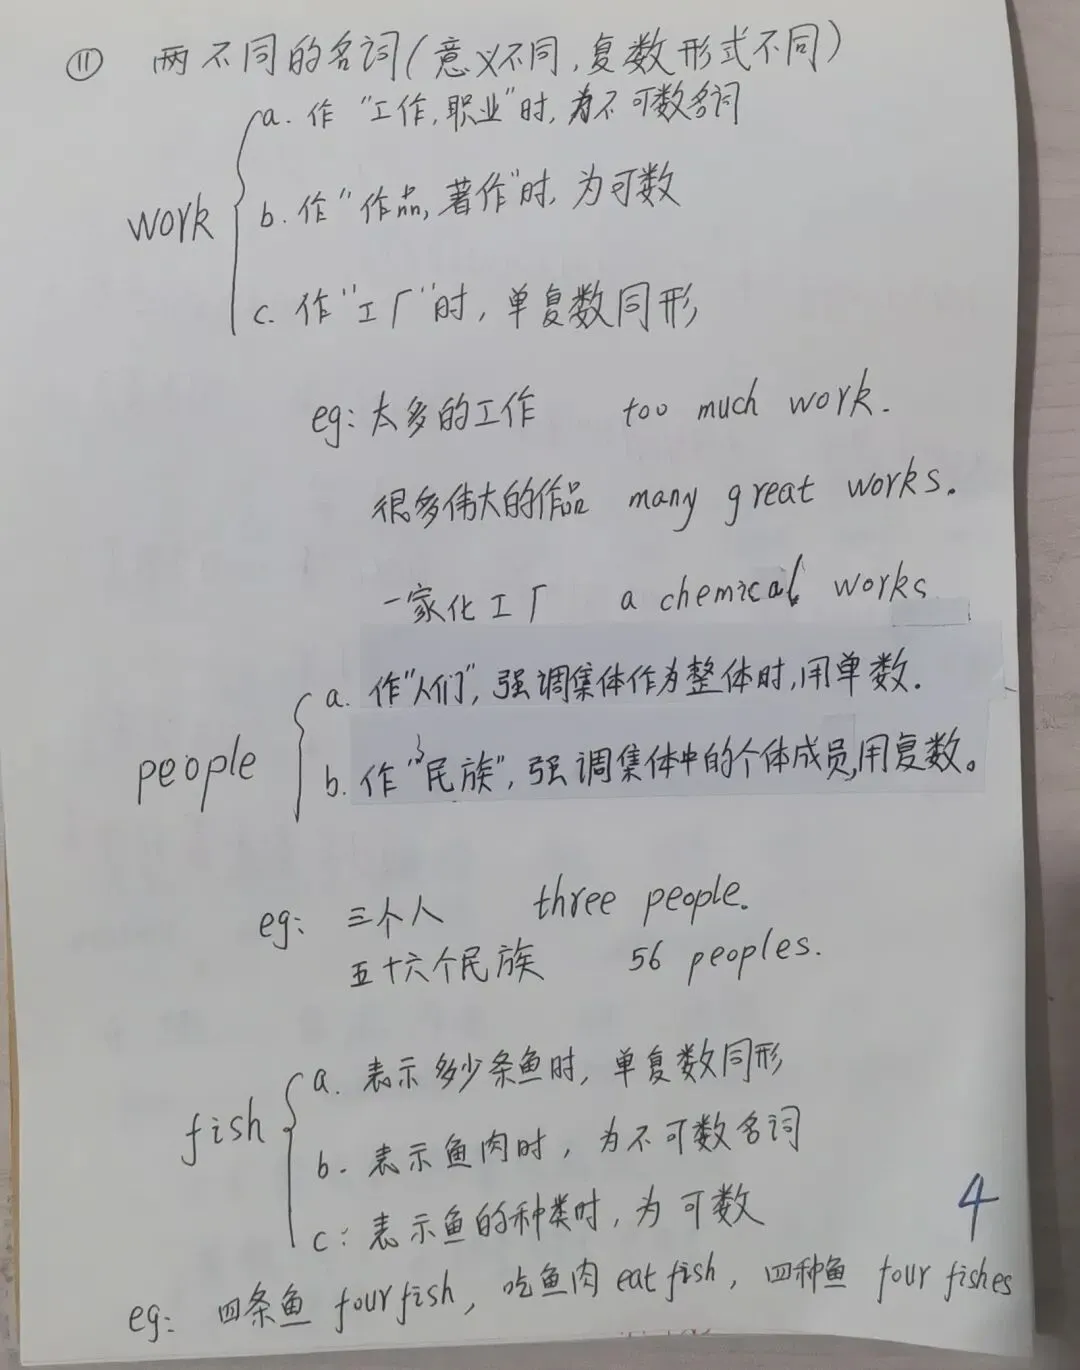 ⑪ 两不同的名词(意义不同,复数形式不同)
a. 作"工作,职业"时,为不可数名词
work
b. 作"作品,著作"时,为可数
c. 作"工厂"时,单复数同形
eg: 太多的工作 too much work.
很多伟大的作品 many great works.
一家化工厂 a chemical works
a. 作"人们",强调集体作为整体时,用单数.
people
b. 作"民族",强调集体中的个体成员,用复数。
eg: 三个人 three people.
五十六个民族 56 peoples.
a. 表示多少条鱼时,单复数同形
fish
b. 表示鱼肉时,为不可数名词
c: 表示鱼的种类时,为可数
4
eg: 四条鱼 four fish, 吃鱼肉 eat fish, 四种鱼 four fishes